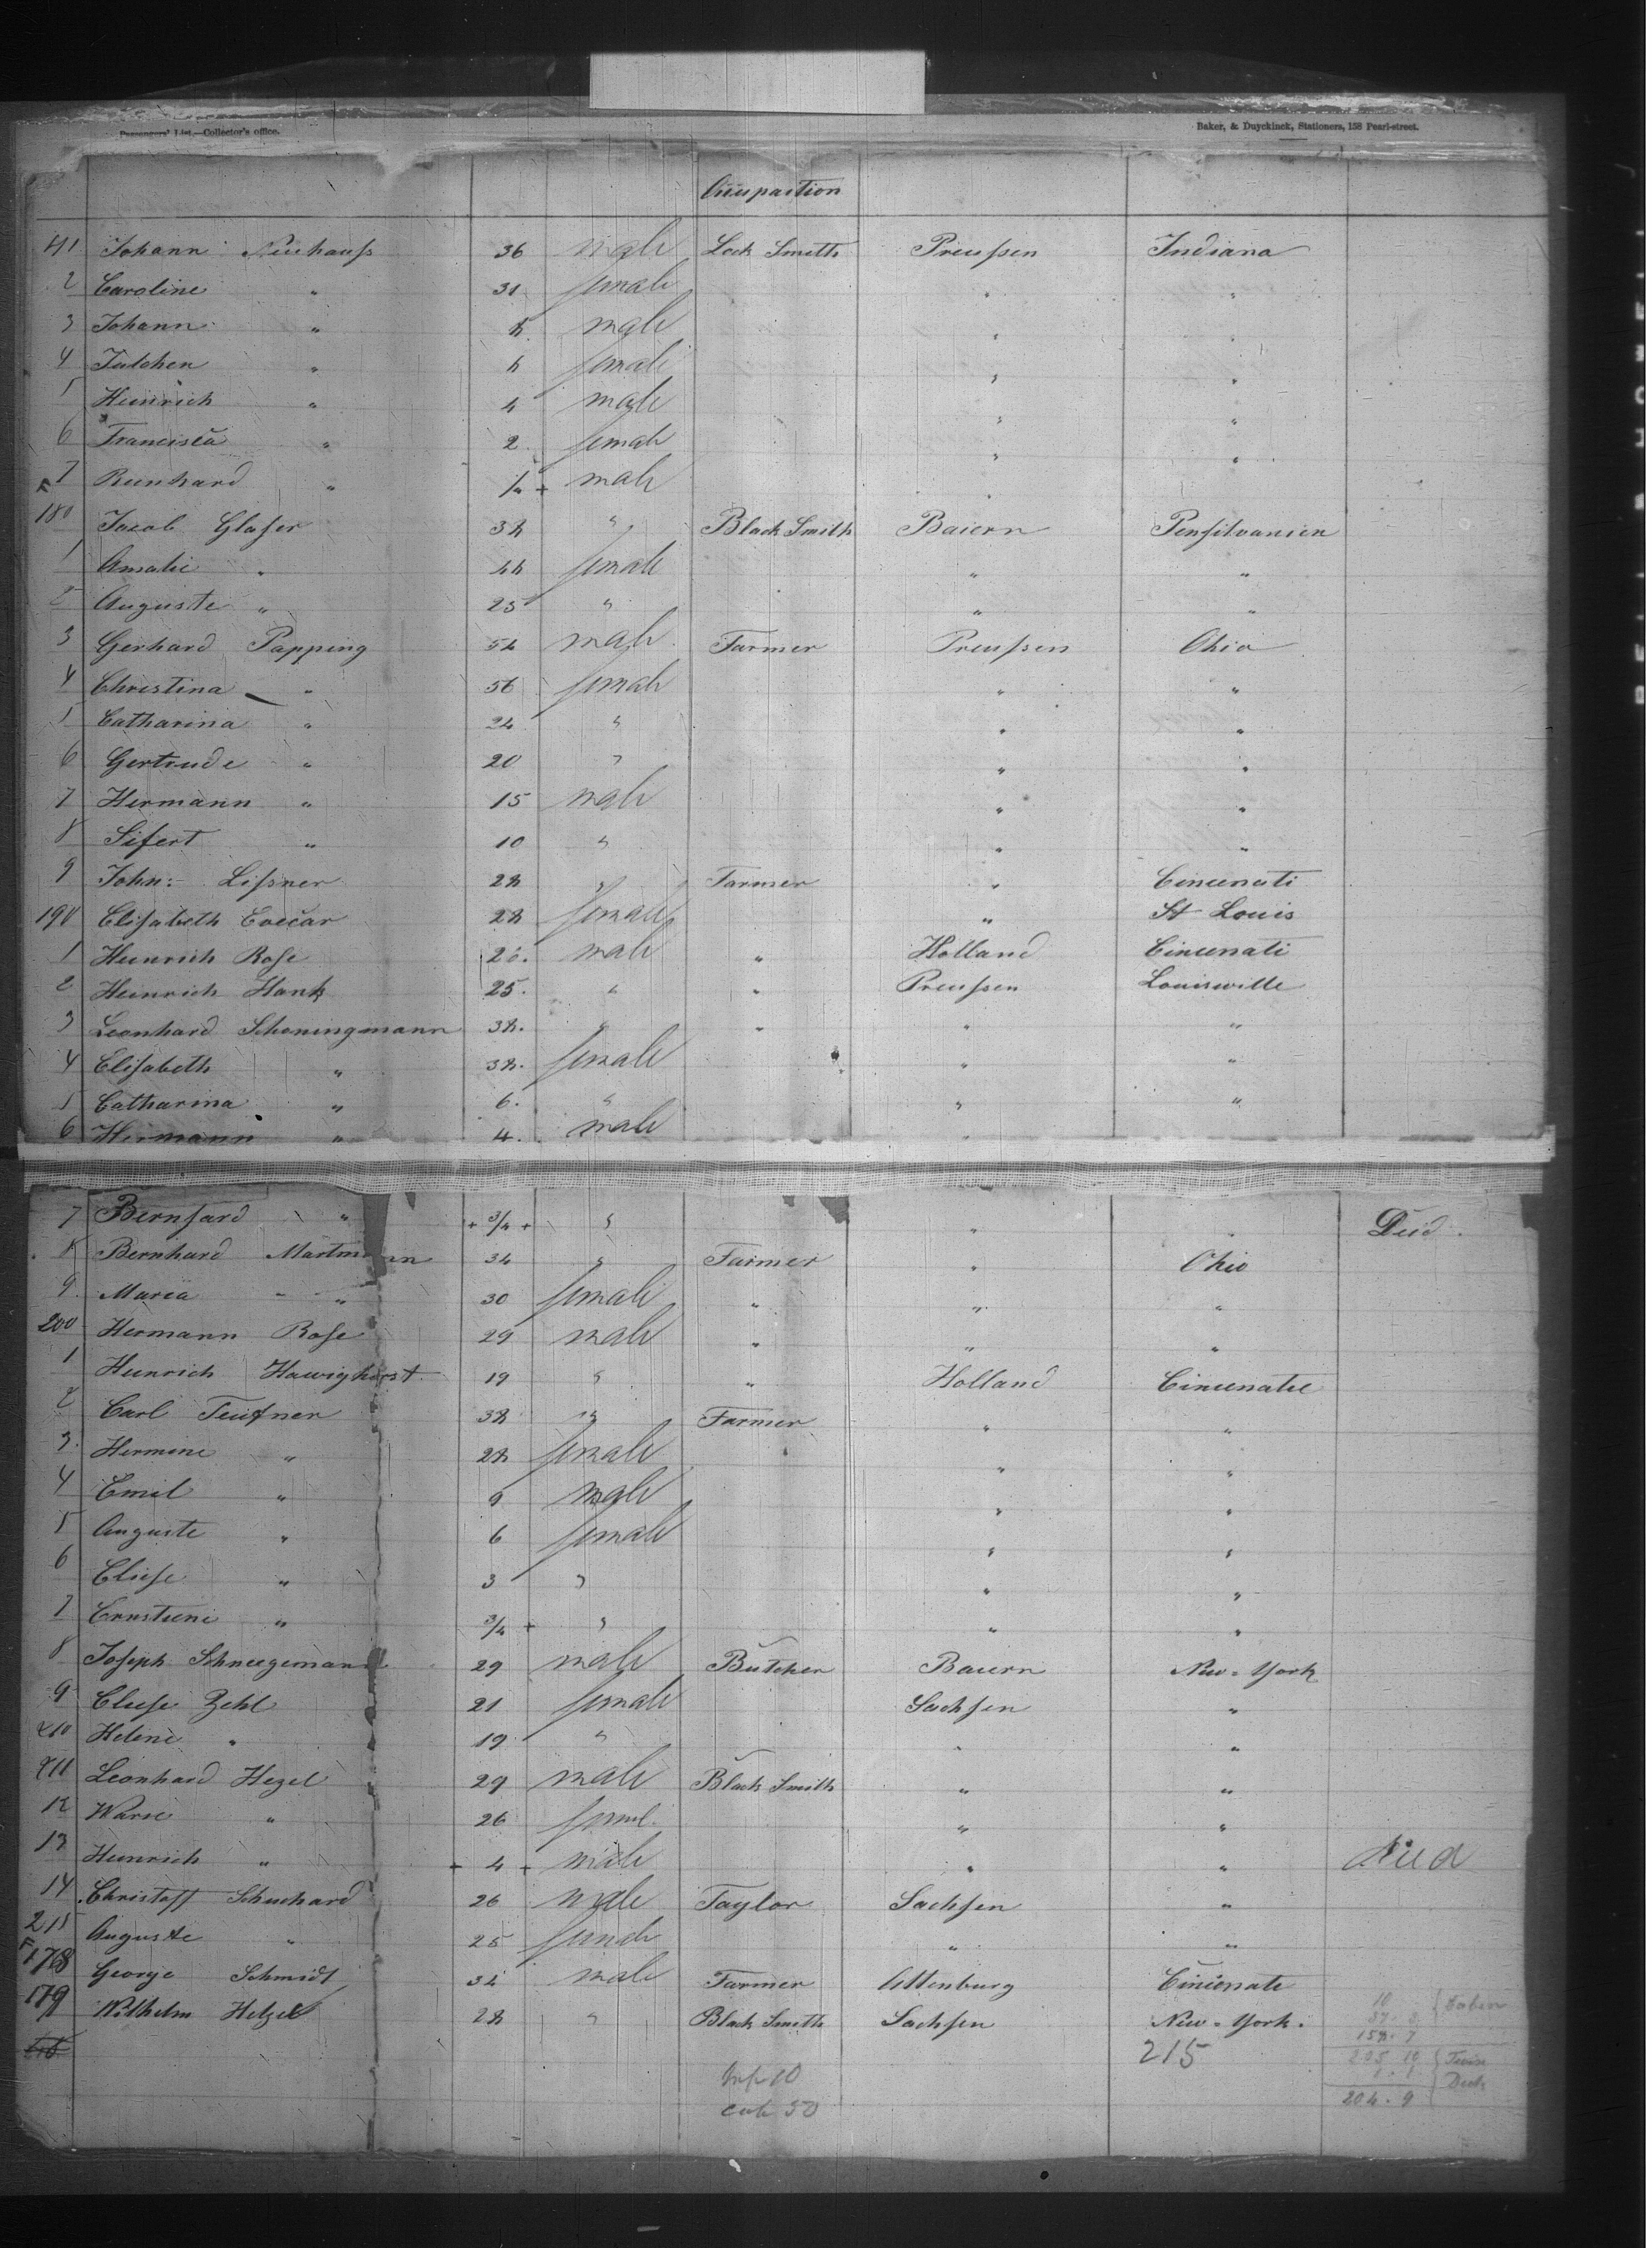 Passengers' List.—Collector's office. Baker, & Duyckinck, Stationers, 158 Pearl-street.
Occupaition
41 Johann Neuhauſs 36 male Lock Smith Preuſsen Indiana
2 Caroline " 31 female " "
3 Johann " male " "
4 Julchen " female " "
5 Heinrich " 4 male " "
6 Francisca " 2 female " "
7 Reinhard " male "
180 Jacob Glaſer 38 " Black Smith Baiern Penſilvanien
1 Amalie " 48 female " "
2 Auguste " 25 " " "
3 Gerhard Papping 54 male Farmer Preuſsen Ohio
4 Christina " 56 female " "
5 Catharina " 24 " " "
6 Gertrude " 20 " " "
7 Hermann " 15 male " "
8 Sifert " 10 " " "
9 John: Liſsner 28 " Farmer " Cincenati
190 Eliſabeth 28 female " St Louis
1 Heinrich Roſe 26. male " Holland Cincenati
2 Heinrich Hank 25. " " Preuſsen Louiswille
3 Leonhard Schoningmann 38. " " " "
4 Eliſabeth " 38. female " "
5 Catharina " 6. " " "
6 Hermann " 4. male "
7 Bernhard " + 3/4 + " " " Deid.
8 Bernhard Martmann 34 " Farmer " Ohio
9 Maria " 30 female " " "
200 Hermann Roſe 29 male " " "
1 Heinrich Hawighorst 19 " " Holland Cincenatie
2 Carl Teufner 38 " Farmer " "
3. Hermine " 28 female " "
4 Emil " 9 male " "
5 Auguste " 6 female " "
6 Elieſe " 3 " " "
7 Ernstiene " 3/4 + " " "
8 Joſeph Schneegemann 29 male Butcher Baiern New-York
9 Elieſe Zehl 21 female Sachſen "
210 Helene " 19 " " "
211 Leonhard Hezel 29 male Black Smith " "
12 Marie " 26 feml. " "
13 Heinrich " + 4 + male " " Died
14 Christoff Schuchard 26 male Taylor Sachſen "
215 Auguste " 25 female " "
178 George Schmidt 34 male Farmer Altenburg Cincenati
179 Wilhelm Hetzel 28 " Black Smith Sachſen New-York.
215
158. 7
205 10
Inf 10
204. 9